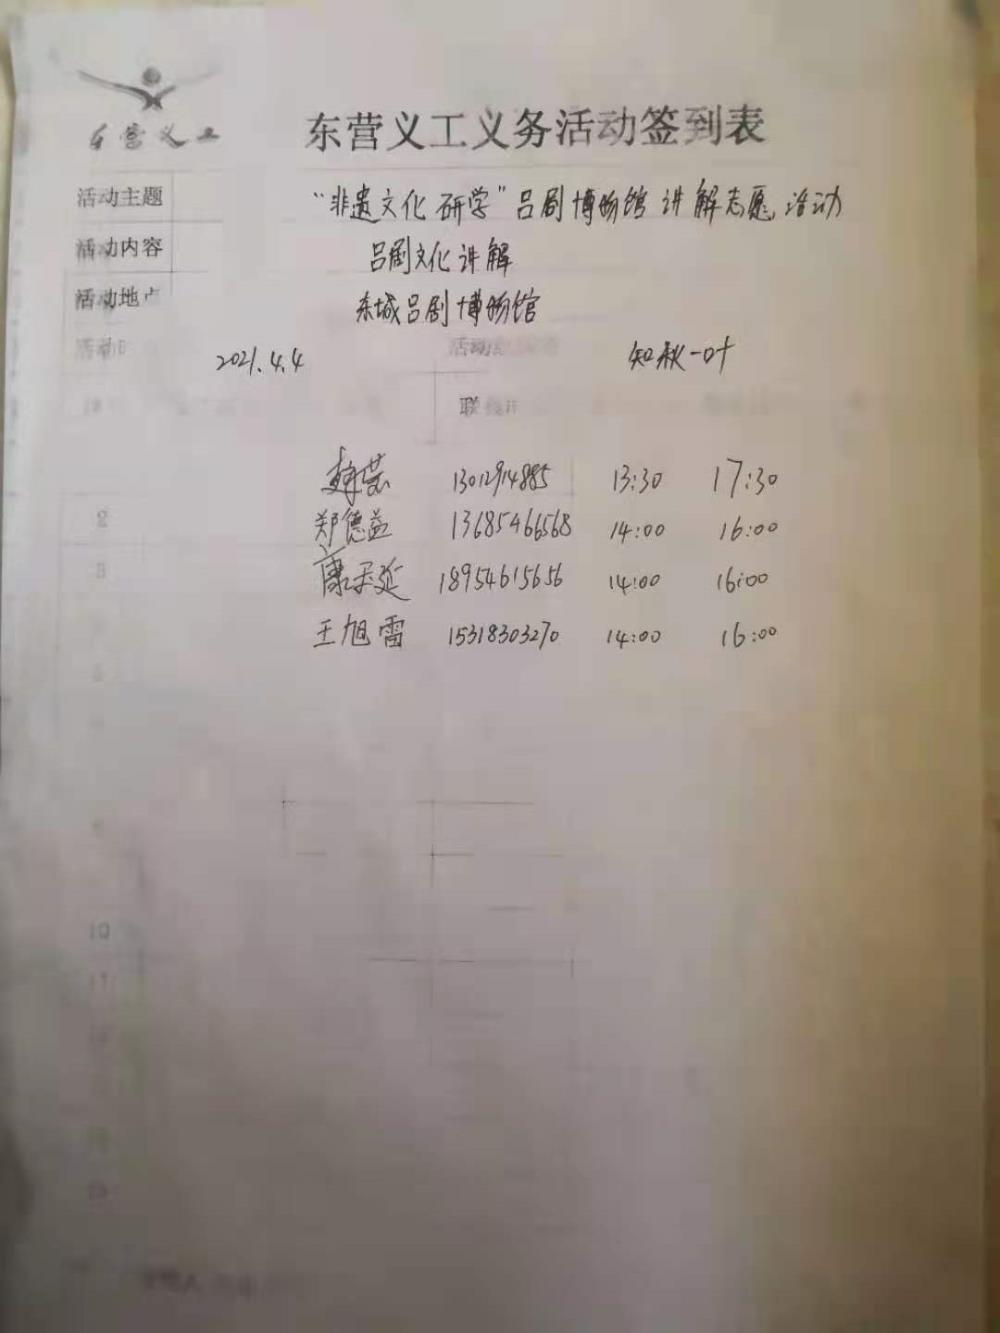 东营义工
东营义工义务活动签到表
活动主题 "非遗文化研学"吕剧博物馆讲解志愿活动
活动内容 吕剧文化讲解
活动地点 东城吕剧博物馆
活动时 2021.4.4 活动 知秋一叶
联系
13:30 17:30
郑德益 13685466568 14:00 16:00
康 延 18954615656 14:00 16:00
王旭雷 15318303270 14:00 16:00
2
3
10
11